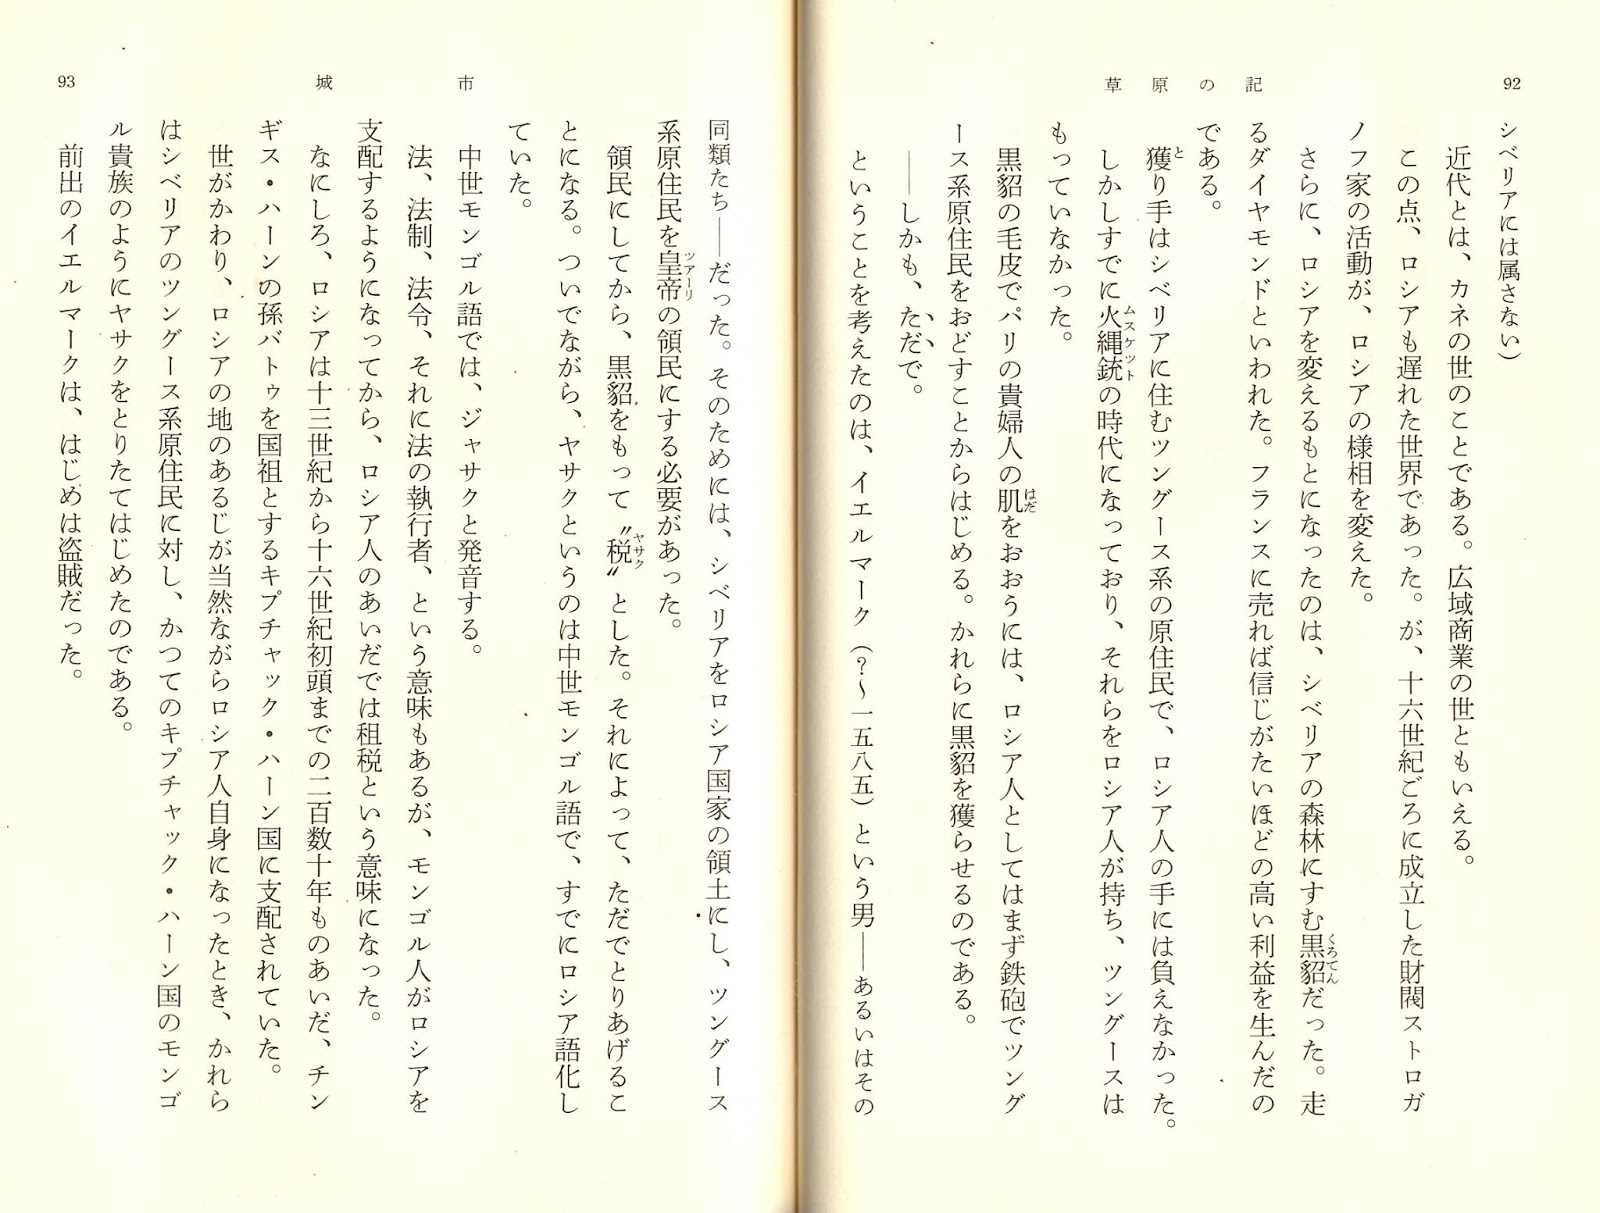 92
草原の記
シベリアには属さない）
近代とは、カネの世のことである。広域商業の世ともいえる。
この点、ロシアも遅れた世界であった。が、十六世紀ごろに成立した財閥ストロガ
ノフ家の活動が、ロシアの様相を変えた。
さらに、ロシアを変えるもとになったのは、シベリアの森林にすむ黒貂だった。走
くろてん
るダイヤモンドといわれた。フランスに売れば信じがたいほどの高い利益を生んだの
である。
獲り手はシベリアに住むツングース系の原住民で、ロシア人の手には負えなかった。
と
しかしすでに火縄銃の時代になっており、それらをロシア人が持ち、ツングースは
ムスケット
もっていなかった。
黒貂の毛皮でパリの貴婦人の肌をおおうには、ロシア人としてはまず鉄砲でツング
はだ
ース系原住民をおどすことからはじめる。かれらに黒貂を獲らせるのである。
――しかも、ただで。
ということを考えたのは、イエルマーク（？～一五八五）という男――あるいはその
同類たち――だった。そのためには、シベリアをロシア国家の領土にし、ツングース
系原住民を皇帝の領民にする必要があった。
ツアーリ
領民にしてから、黒貂をもって〝税〟とした。それによって、ただでとりあげるこ
ヤサク
とになる。ついでながら、ヤサクというのは中世モンゴル語で、すでにロシア語化し
ていた。
中世モンゴル語では、ジャサクと発音する。
法、法制、法令、それに法の執行者、という意味もあるが、モンゴル人がロシアを
支配するようになってから、ロシア人のあいだでは租税という意味になった。
なにしろ、ロシアは十三世紀から十六世紀初頭までの二百数十年ものあいだ、チン
ギス・ハーンの孫バトゥを国祖とするキプチャック・ハーン国に支配されていた。
世がかわり、ロシアの地のあるじが当然ながらロシア人自身になったとき、かれら
はシベリアのツングース系原住民に対し、かつてのキプチャック・ハーン国のモンゴ
ル貴族のようにヤサクをとりたてはじめたのである。
前出のイエルマークは、はじめは盗賊だった。
市城
93